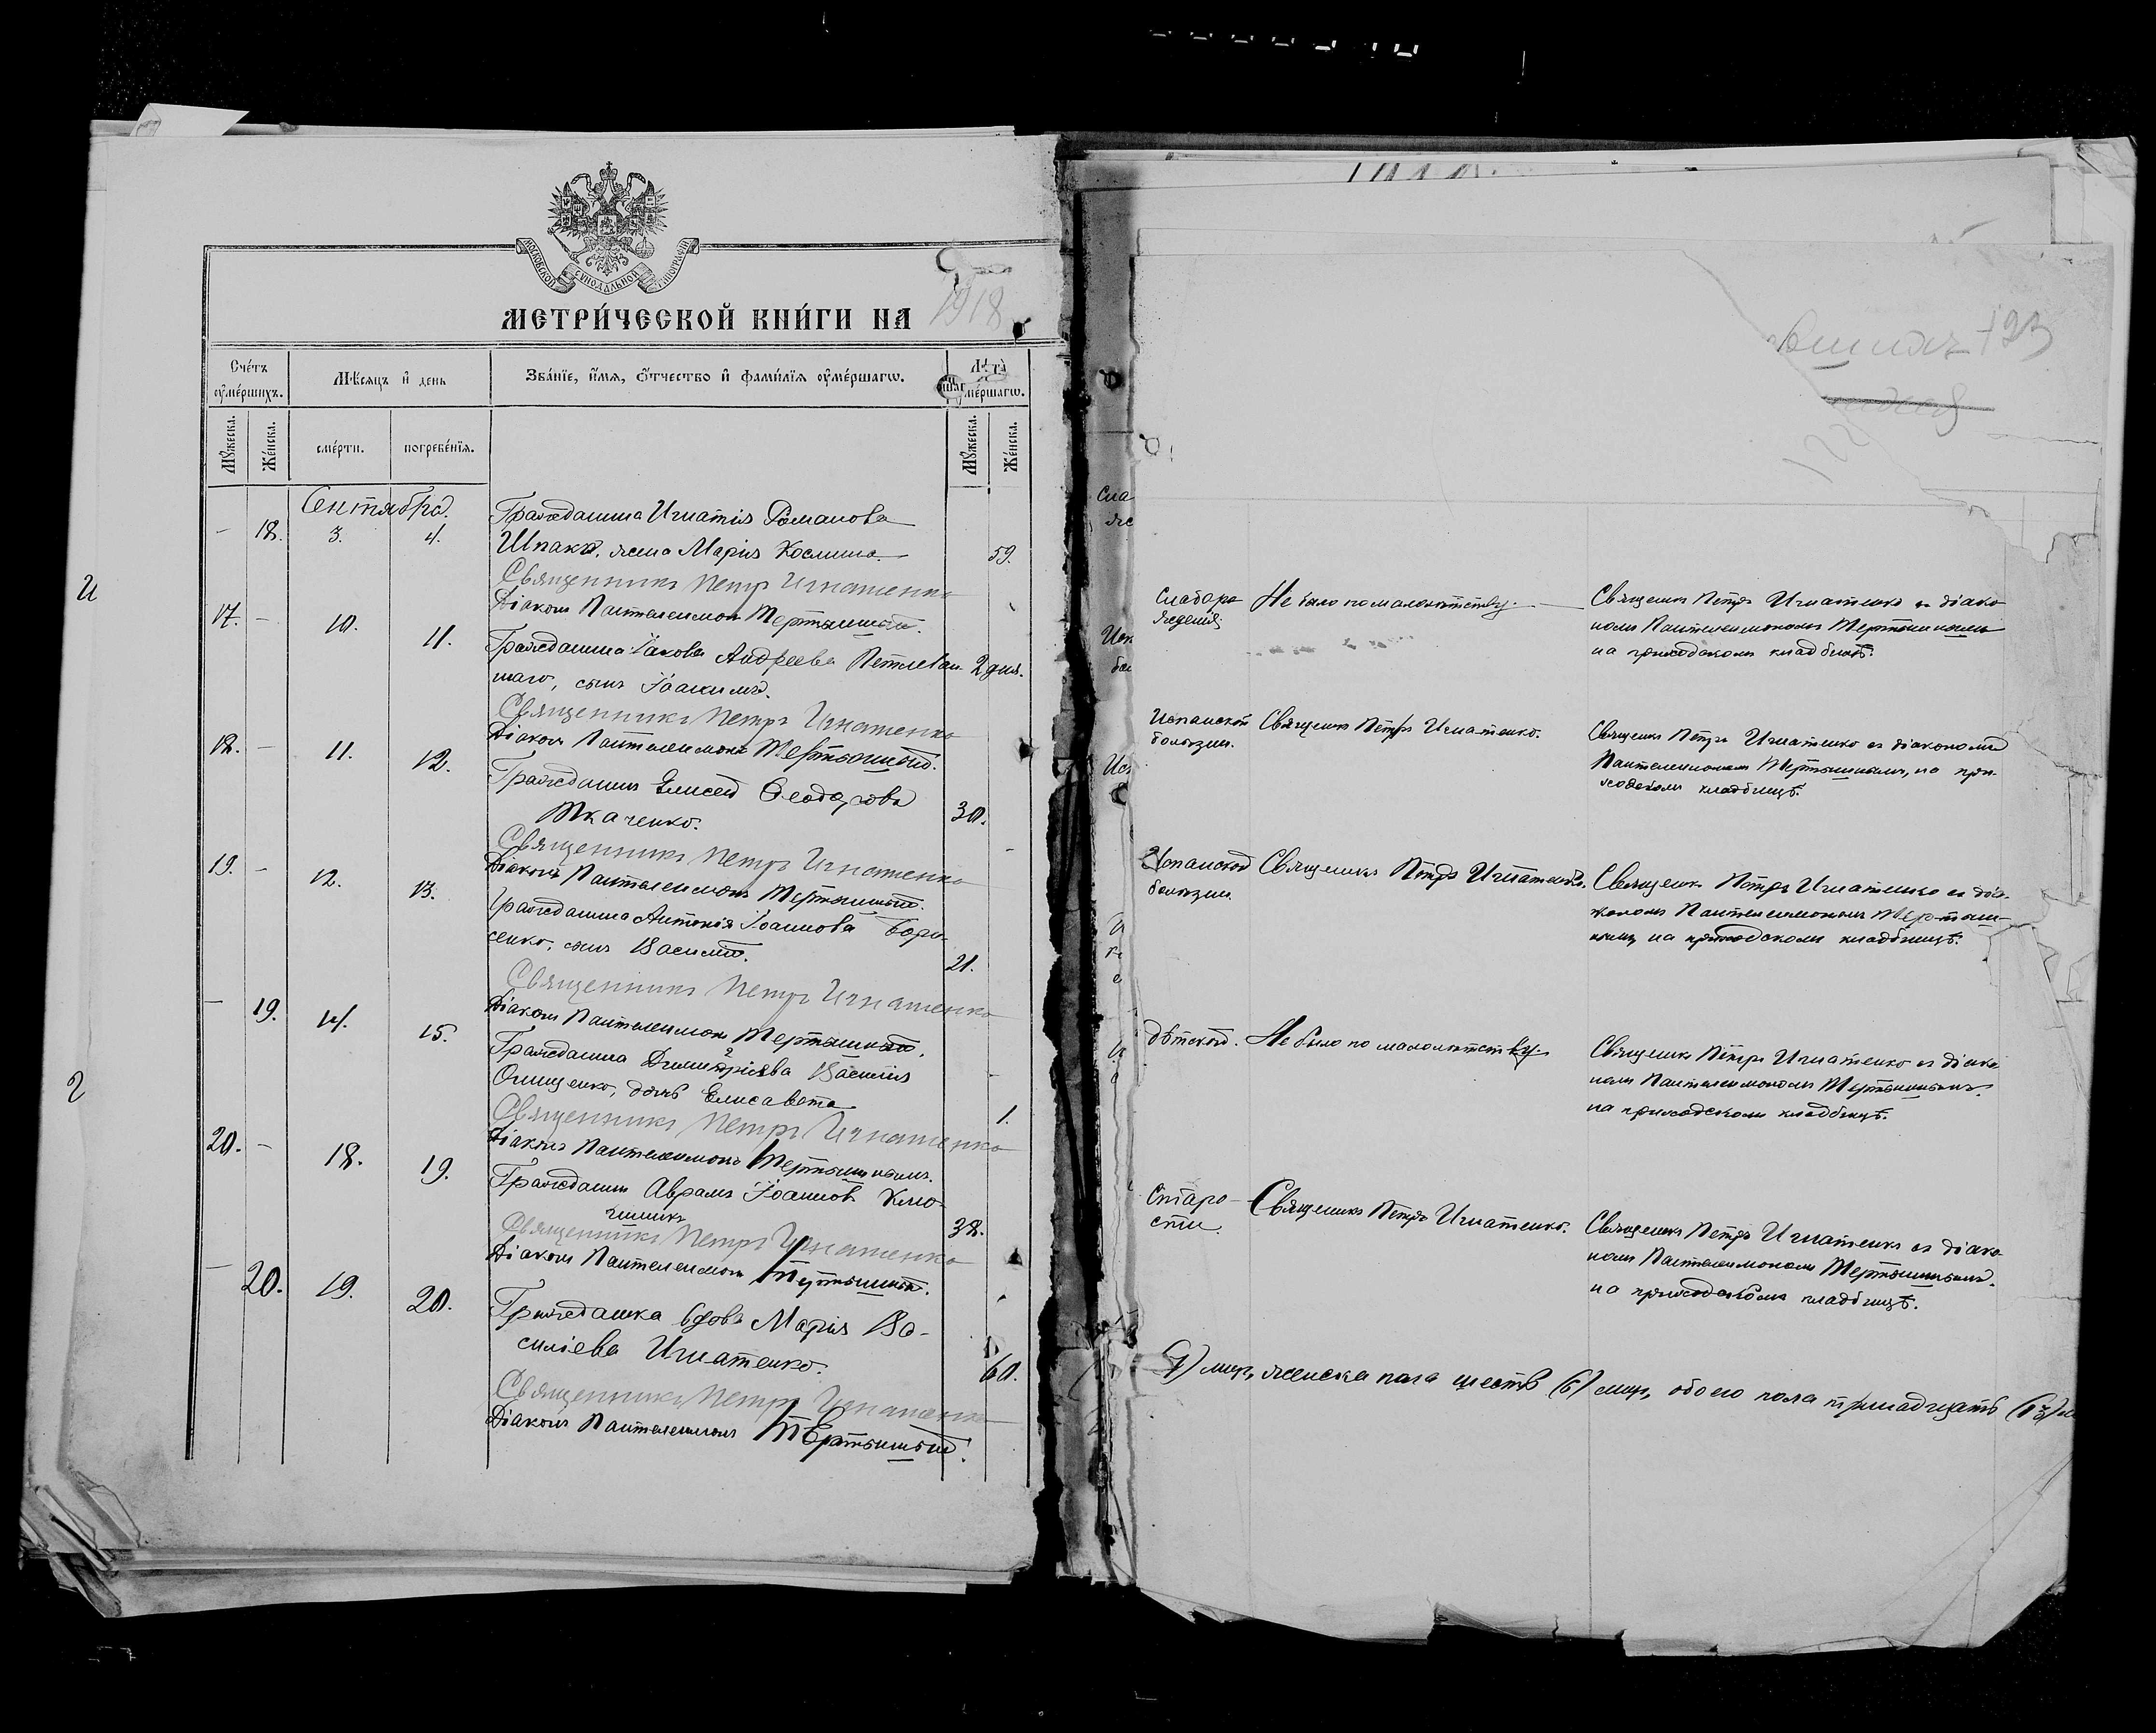 МОСКОВСКОЙ СѴНОДАЛЬНОЙ ТИПОГРАФІИ
МЕТРИ́ЧЕСКОЙ КНИ́ГИ НА 1918
Сче́тъ ᲂумéршихъ.
Мѣ́сяцъ и҆ день
Зва́нїе, и҆́мя, ѻ҆́тчество и҆ фами́лїя ᲂу҆мéршагѡ.
Лѣ́та ᲂу҆мéршагѡ.
Мꙋ́жеска.
Же́нска.
сме́рти.
погребе́нїя.
Мꙋ́жеска.
Же́нска.
Сентября
- 18. 3. 4. Гражданина Игнатія Романова
Шпака, жена Марія Космина 59.
Священникъ Петръ Игнатенко
Діаконъ Пантелеимонъ Тертышный.
17. - 10. 11. Гражданина Іакова Андреева
наго, сынъ Іоакимъ. 2 дня.
Священникъ Петръ Игнатенко
Діаконъ Пантелеимонъ Тертышный.
18. - 11. 12. Гражданинъ Елисей Ѳеодоровъ
Ткаченко. 30.
Священникъ Петръ Игнатенко
Діаконъ Пантелеимонъ Тертышный.
19. - 12. 13. Гражданина Антонія Іоаннова Бори-
сенко, сынъ Василій. 21.
Священникъ Петръ Игнатенко
Діаконъ Пантелеимонъ Тертышный.
- 19. 14. 15. Гражданина Димитріева Василія
Онищенко, дочь Елисавета 1.
Священникъ Петръ Игнатенко
Діаконъ Пантелеимонъ Тертышный.
20. - 18. 19. Гражданинъ Аврамъ Іоанновъ Клю-
чникъ 38.
Священникъ Петръ Игнатенко
Діаконъ Пантелеимонъ Тертышный.
- 20. 19. 20. Гражданка вдова Марія Ва-
силіева Игнатенко. 60.
Священникъ Петръ Игнатенко
Діаконъ Пантелеимонъ Тертышный.
Слаборо-
жденія
Не было по малолѣтству.
Священникъ Петръ Игнатенко съ діако-
номъ Пантелеимономъ Тертышнымъ
на приходскомъ кладбищѣ.
Испанской
болѣзни.
Священникъ Петръ Игнатенко.
Священникъ Петръ Игнатенко съ діакономъ
Пантелеимономъ Тертышнымъ, на при-
ходскомъ кладбищѣ.
Испанской
болѣзни.
Священникъ Петръ Игнатенко.
Священникъ Петръ Игнатенко съ діа-
кономъ Пантелеимономъ Тертыш-
нымъ на приходскомъ кладбищѣ.
Дѣтской.
Не было по малолѣтству
Священникъ Петръ Игнатенко съ діако-
номъ Пантелеимономъ Тертышнымъ.
на приходскомъ кладбищѣ.
Старо-
сти.
Священникъ Петръ Игнатенко.
Священникъ Петръ Игнатенко съ діако-
номъ Пантелеимономъ Тертышнымъ.
на приходскомъ кладбищѣ.
(7) лицъ, женска пола шесть (6) лицъ, обоего пола тринадцать (13)